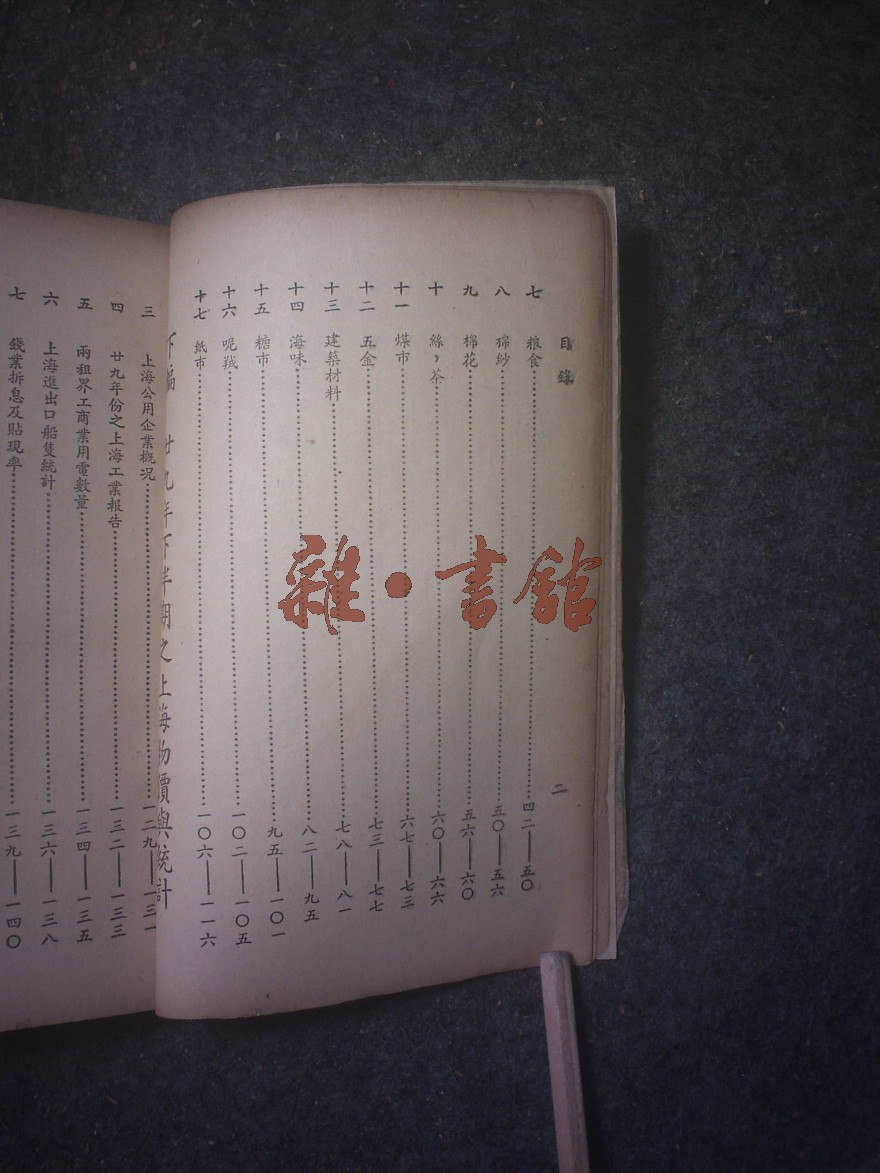 目錄
二
七 粮食 四二——五〇
八 棉紗 五〇——五六
九 棉花 五六——六〇
十 絲，茶 六〇——六六
十一 煤市 六七——七三
十二 五金 七三——七七
十三 建築材料 七八——八一
十四 海味 八二——九五
十五 糖市 九五——一〇一
十六 呢羢 一〇二——一〇五
十七 紙市 一〇六——一一六
下編 廿九年下半期之上海物價與統計
三 上海公用企業概况 一二九——一三一
四 廿九年份之上海工業報告 一三二——一三三
五 兩租界工商業用電數量 一三四——一三五
六 上海進出口船隻統計 一三六——一三八
七 錢業拆息及貼現率 一三九——一四〇
雜·書館